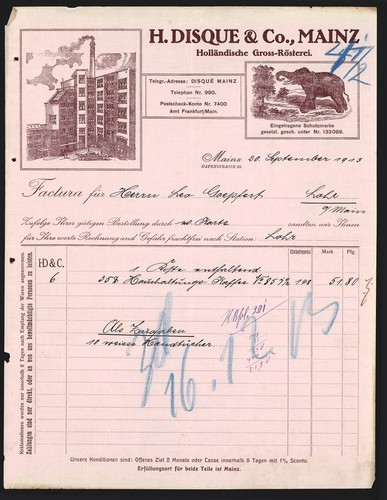 H. DISQUE & Co., MAINZ
Holländische Gross-Rösterei.
Telegr.-Adresse: DISQUÉ MAINZ
Telephon Nr. 990.
Postscheck-Konto Nr. 7400
Amt Frankfurt/Main.
Eingetragene Schutzmarke
gesetzl. gesch. unter Nr. 133089.
Mainz 20. September 1913
HAFENSTRASSE
Factura für Herrn Leo Goepfert Lohr
a/Main
Zufolge Ihrer gütigen Bestellung durch w. Karte sandten wir Ihnen
für Ihre werte Rechnung und Gefahr frachtfrei nach Station: Lohr
Mark Pf.
HD & C.
6
1 Kiste enthaltend
35 Haushaltungs-Kaffee 148 51.80
Als Zugaben
10 weisse Handtücher
16.12.13
Reklamationen werden nur innerhalb 8 Tagen nach Empfang der Waren angenommen.
Zahlungen sind nur direkt, oder an von uns bevollmächtigte Personen zu leisten.
Unsere Konditionen sind: Offenes Ziel 2 Monate oder Casse innerhalb 8 Tagen mit 1% Sconto.
Erfüllungsort für beide Teile ist Mainz.